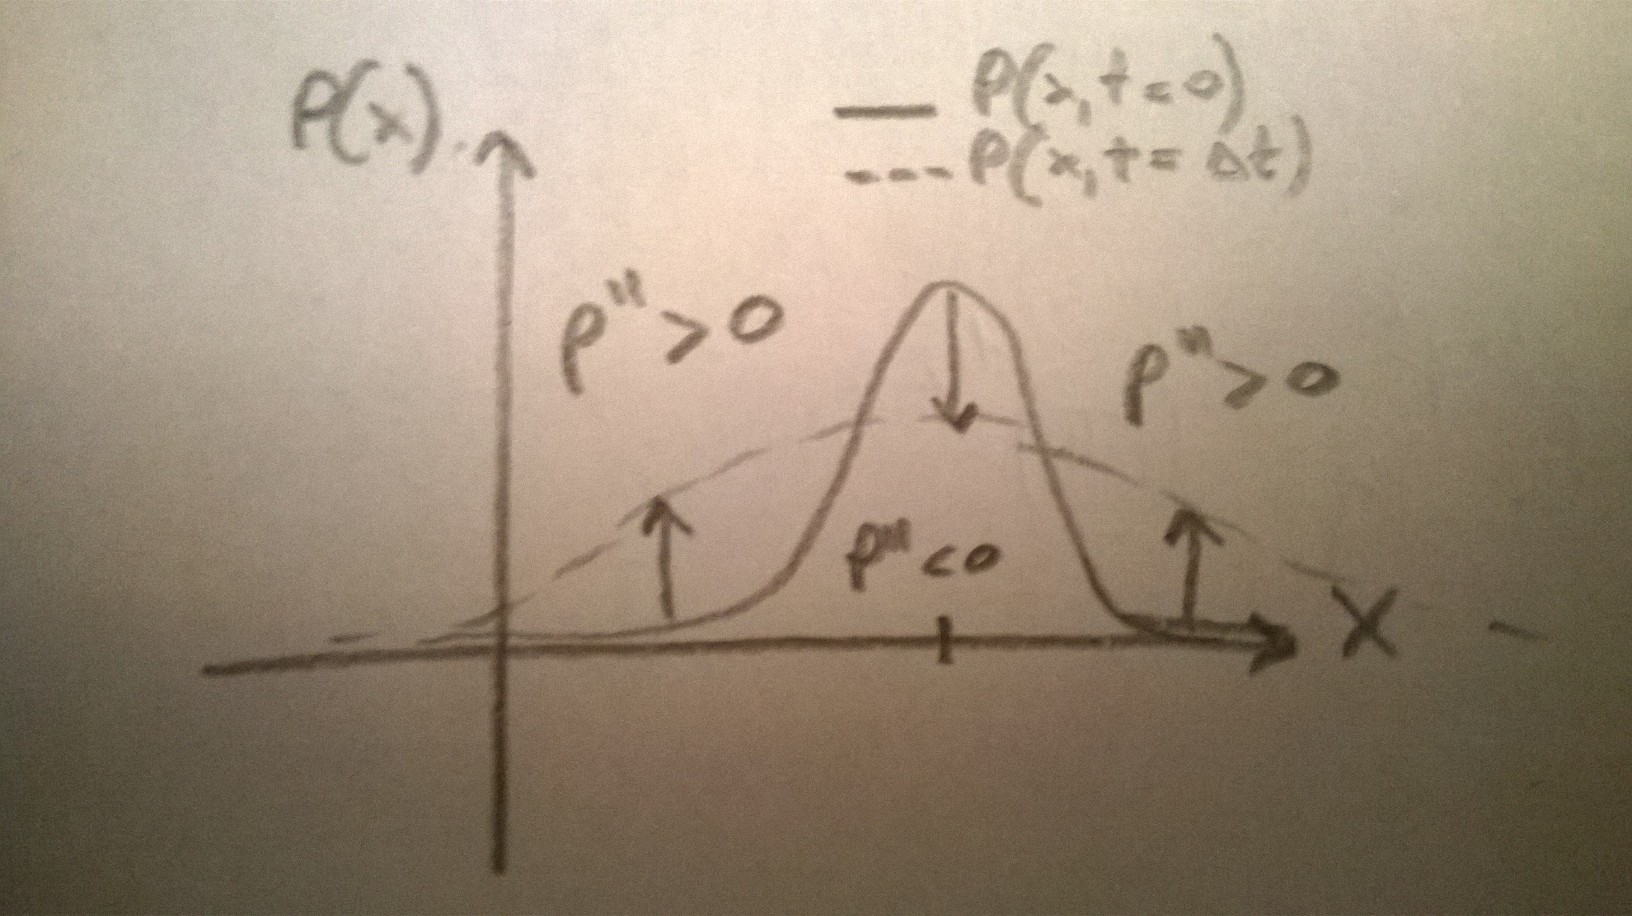 P(x)
P(x, t = 0)
P(x, t = Δt)
P'' > 0
P'' > 0
P'' < 0
X